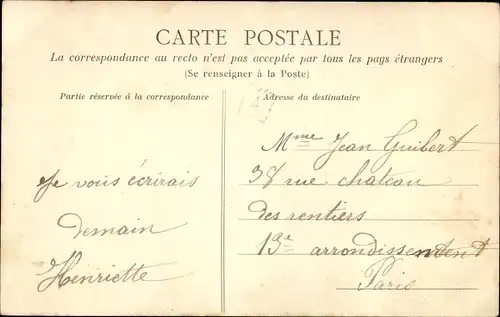 CARTE POSTALE
La correspondance au recto n'est pas acceptée par tous les pays étrangers
(Se renseigner à la Poste)
Partie réservée à la correspondance
Adresse du destinataire
Je vous écrirais
demain
Henriette
Mme Jean Guibert
38 rue chateau
des rentiers
13e arrondissement
Paris